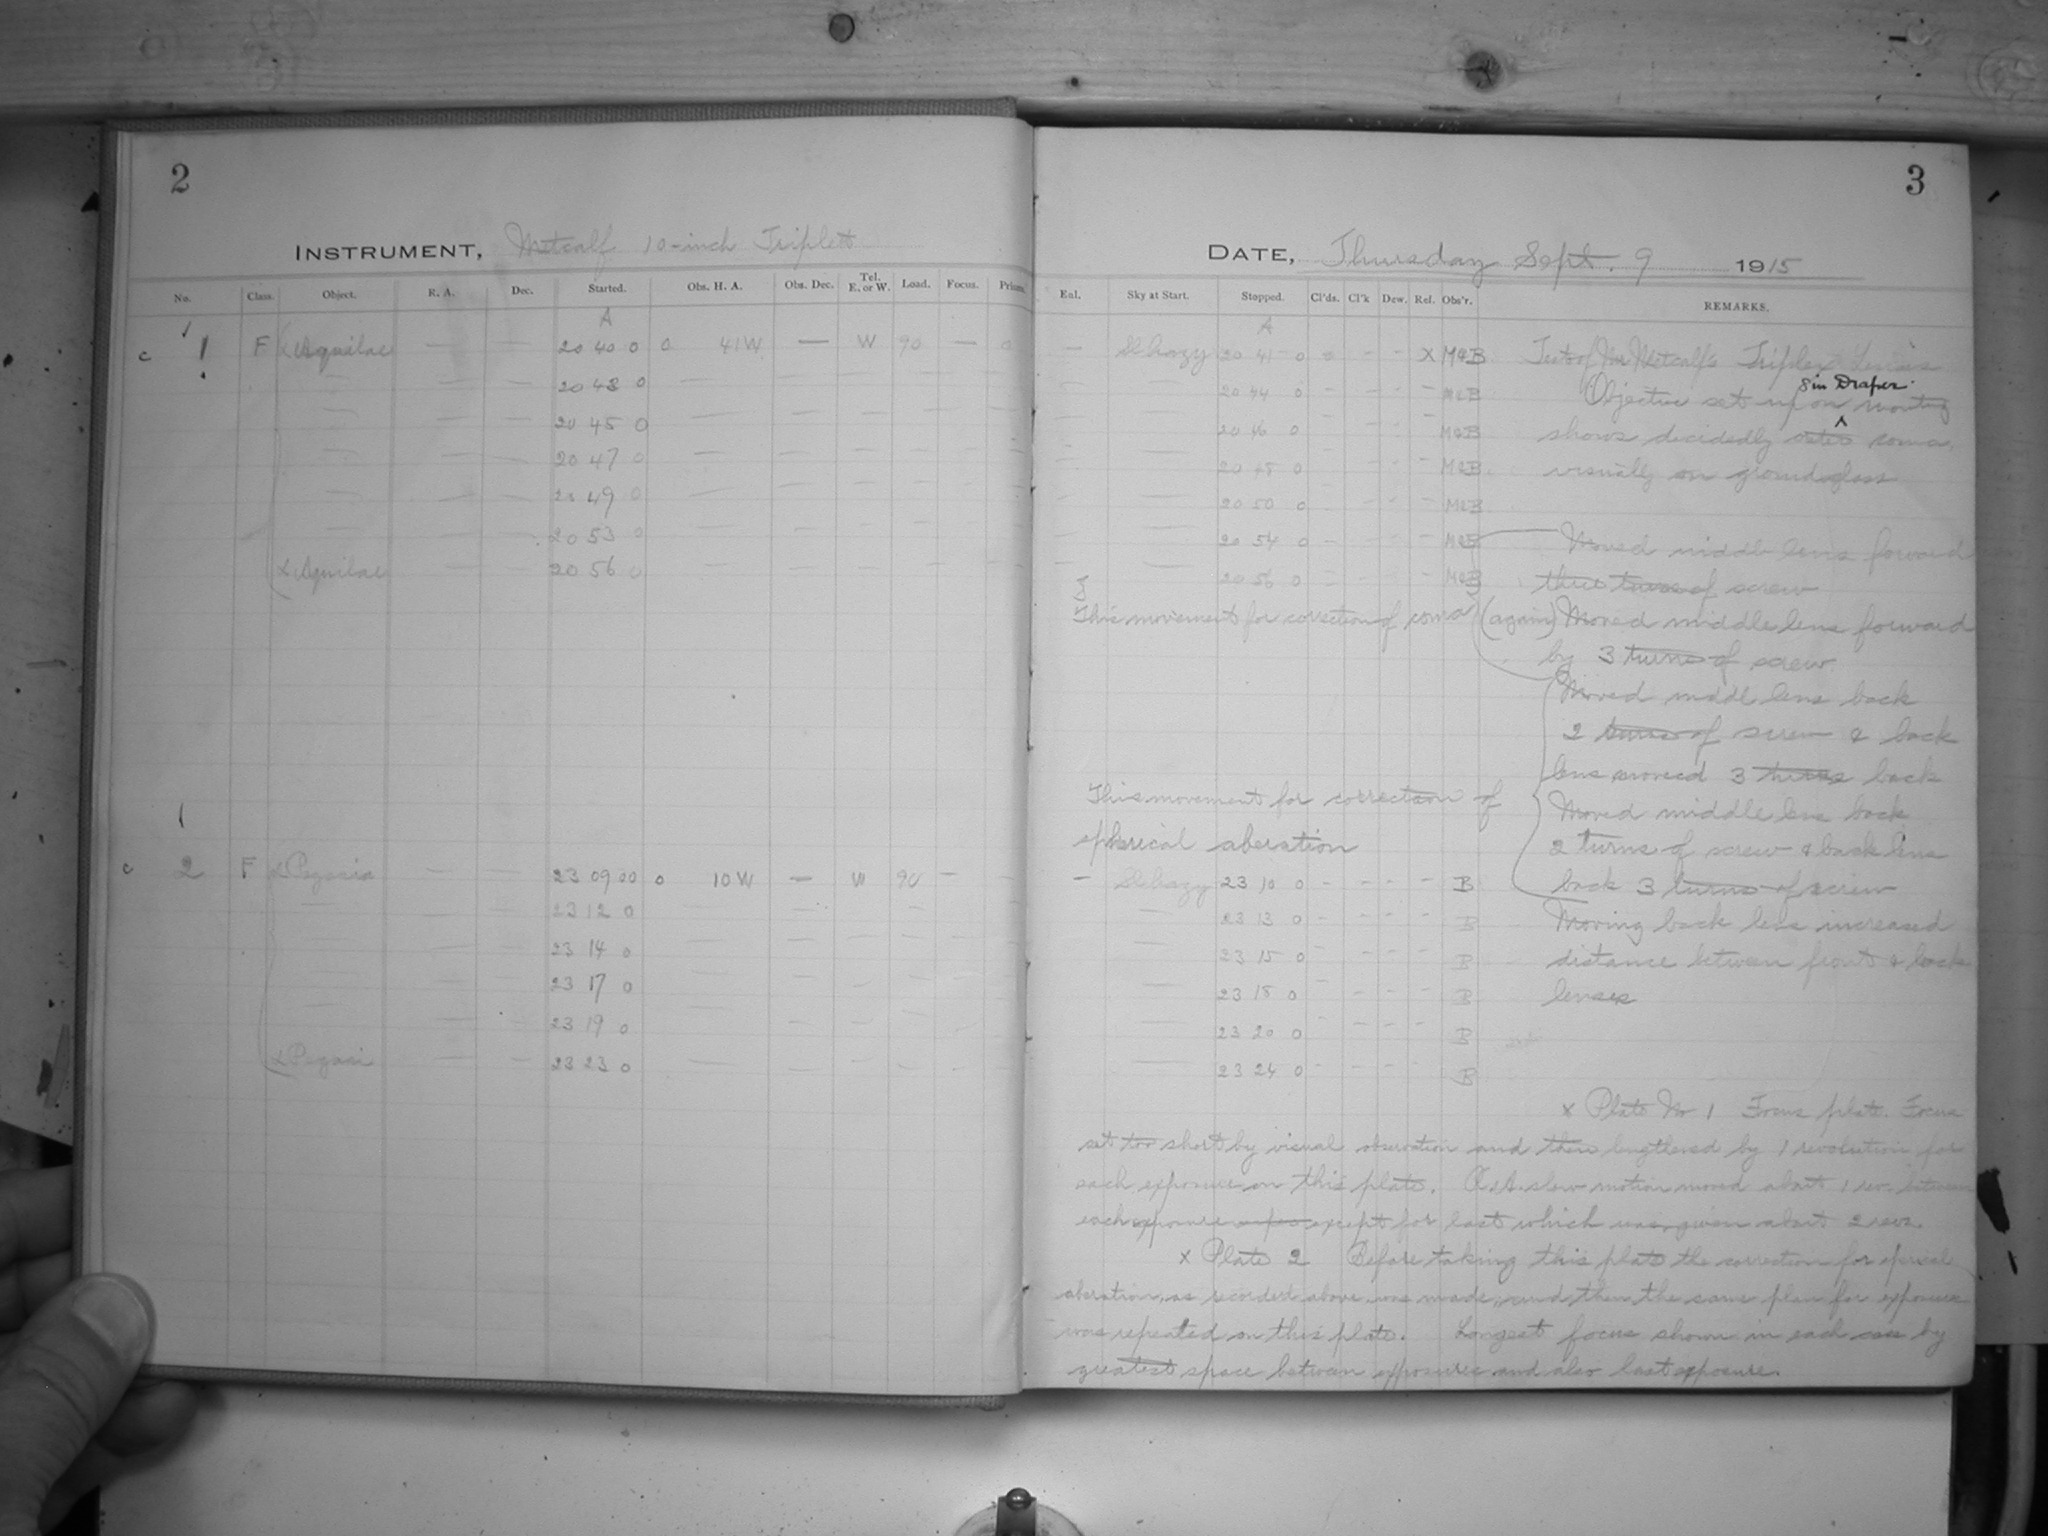 2
INSTRUMENT, Metcalf 10-inch Triplett
No. Class. Object. R. A. Dec. Started. Obs. H. A. Obs. Dec. Tel. E. or W. Load. Focus. Prism.
A
c 1 F α Aquilae — — 20 40 0 0 41 W — W 90 — 0
20 43 0
20 45 0
20 47 0
20 49 0
20 53 0
α Aquilae 20 56 0
c 2 F α Pegasi — — 23 09 00 0 10 W — W 90 — —
23 12 0
23 14 0
23 17 0
23 19 0
α Pegasi 23 23 0
3
DATE, Thursday Sept. 9 1915
Eul. Sky at Start. Stopped. Cl'ds. Cl'k Dew. Rel. Obs'r. REMARKS.
A
— Sl hazy 20 41 0 0 - - X M&B Tests of Mr Metcalf's Triplex
20 44 0 M&B Objective set up on 8 in Draper mounting
20 46 0 M&B shows decidedly coma,
20 48 0 M&B visually on ground glass
20 50 0 M&B
20 54 0 M&B Moved middle lens forward
20 56 0 M&B three turns of screw
This movement for correction of coma (again) Moved middle lens forward
by 3 turns of screw
Moved middl lens back
2 turns of screw & back
lens moved 3 turns back
This movement for correction of Moved middle lens back
spherical aberation 2 turns of screw & back lens
— Sl hazy 23 10 0 - - - - B back 3 turns of screw
23 13 0 B Moving back lens increased
23 15 0 B distance between front & back
23 18 0 B lenses
23 20 0 B
23 24 0 B
x Plate No 1 Focus plate. Focus
set too short by visual observation and then lengthened by 1 revolution for
each exposure on this plate. R.A. slow motion moved about 1 rev. between
each exposure except for last which was given about 2 revs.
x Plate 2 Before taking this plate the correction for
aberation, as recorded above was made, and then the same plan for exposures
was repeated on this plate. Longest focus shown in each case by
greatest space between exposures and also last exposure.